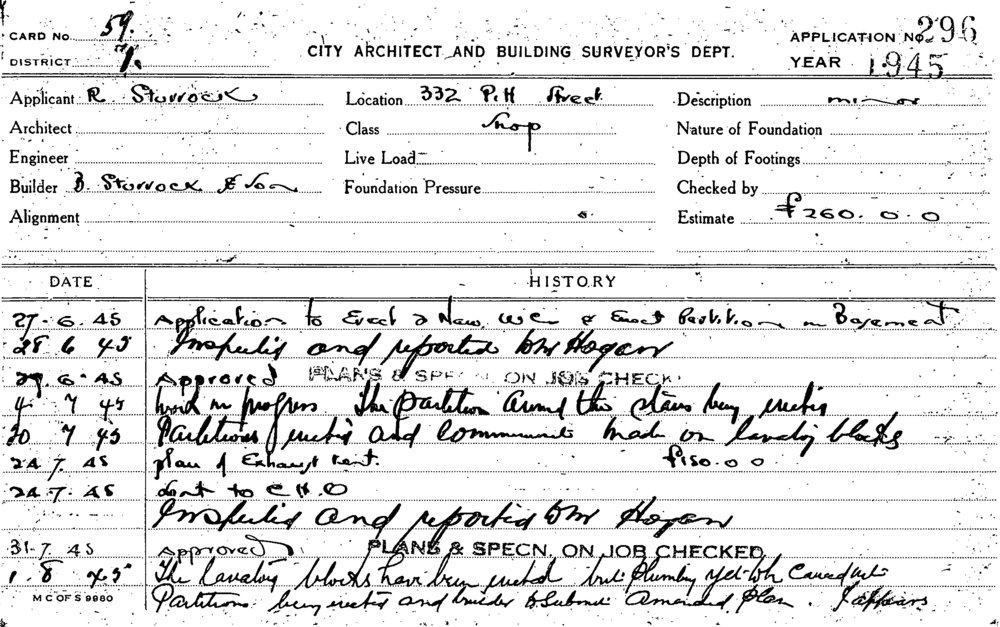 CARD No. 59.
DISTRICT 7.
CITY ARCHITECT AND BUILDING SURVEYOR'S DEPT.
APPLICATION No. 296
YEAR 1945
Applicant R Sturrock
Location 332 Pitt Street
Description minor
Architect
Class Shop
Nature of Foundation
Engineer
Live Load
Depth of Footings
Builder B. Sturrock & Son
Foundation Pressure
Checked by
Alignment
Estimate £260.0.0
DATE HISTORY
27.6.45 Application to Erect 2 New WCs & Erect Partition in Basement
28 6 45 Inspected and reported to Mr Hogan
29.6.45 Approved PLANS & SPECN. ON JOB CHECK
4 7 45 Work in progress The partition around the stairs being erected
20 7 45 Partitions erected and commencement made on lavatory blocks
24.7.45 plan of Exhaust Vent. £150.0.0
24.7.45 sent to C H O
Inspected and reported to Mr Hogan
31.7.45 Approved PLANS & SPECN. ON JOB CHECKED
1.8 45 The lavatory blocks have been erected but Plumbing yet to be carried out
M C OF S 9980
Partitions being erected and builder to submit amended plan. It appears